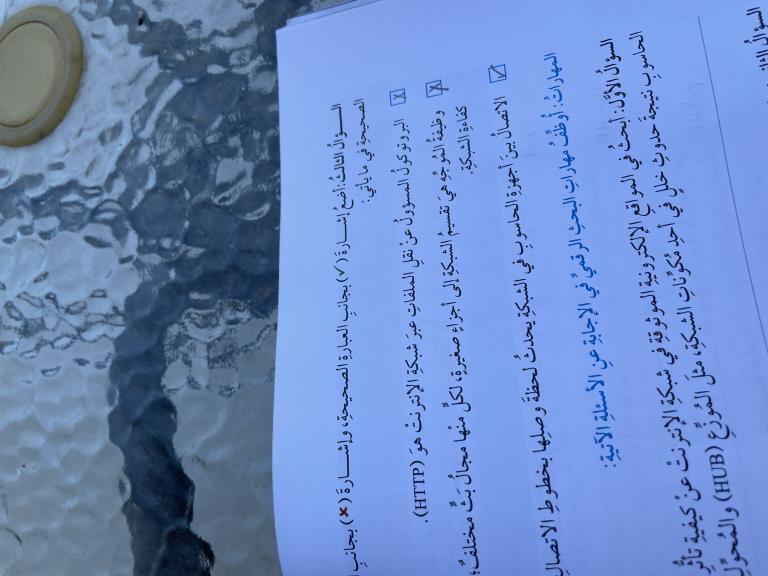 السؤالُ الثالثُ: أضعُ إشارةَ (✓) بجانبِ العبارةِ الصحيحةِ، وإشارةَ (✗) بجانبِ
الصحيحةِ في ما يأتي:
البروتوكولُ المسؤولُ عنْ نقلِ الملفاتِ عبرَ شبكةِ الإنترنتْ هوَ (HTTP).
وظيفةُ المُوجِّهِ هيَ تقسيمُ الشبكةِ إلى أجزاءٍ صغيرةٍ، لكلٍّ منْها مجالُ بَثٍّ مختلفٌ؛
كفاءةِ الشبكةِ.
الاتصالُ بينَ أجهزةِ الحاسوبِ في الشبكةِ يحدثُ لحظةَ وصلِها بخطوطِ الاتصالِ
المهاراتُ: أُوظِّفُ مهاراتِ البحثِ الرقميِّ في الإجابةِ عنِ الأسئلةِ الآتيةِ:
السؤالُ الأوَّلُ: أبحثُ في المواقعِ الإلكترونيةِ الموثوقةِ في شبكةِ الإنترنتْ عنْ كيفيةِ تأثُّرِ
الحاسوبِ نتيجةَ حدوثِ خللٍ في أحدِ مُكوِّناتِ الشبكةِ، مثلَ المُوزِّعِ (HUB) والمُحوِّلِ
السؤالُ الثاني